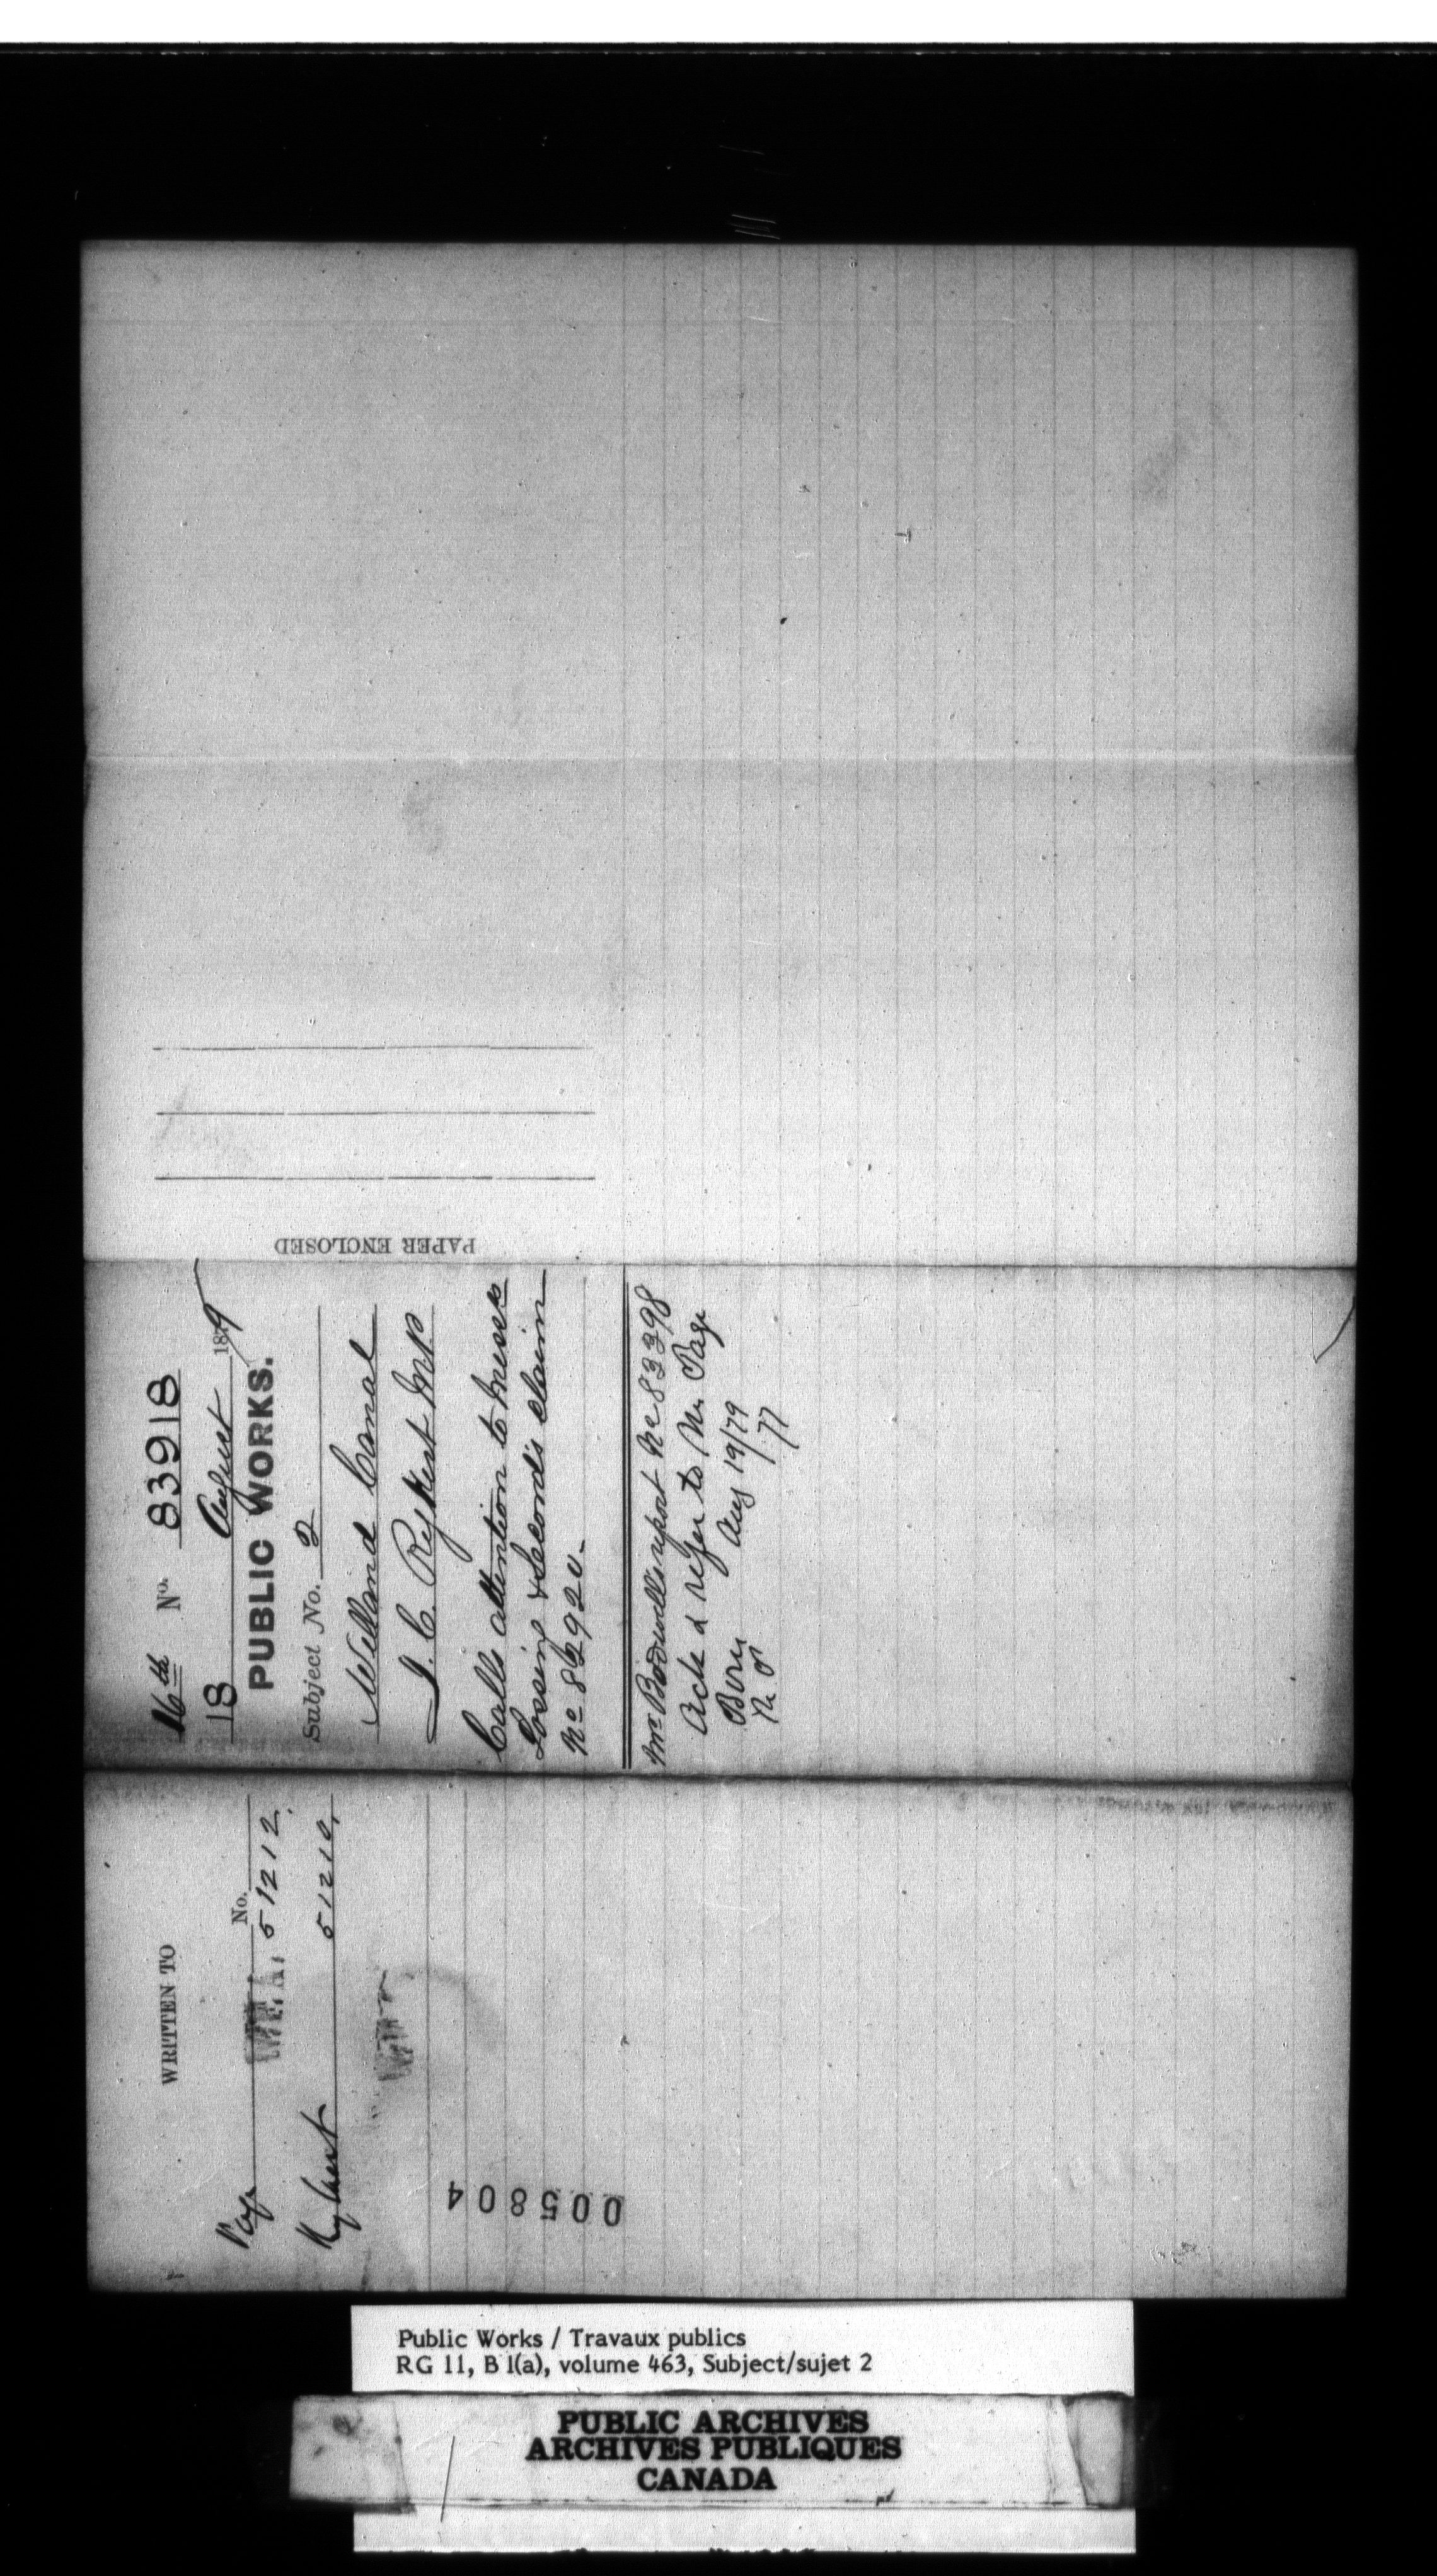 PAPER ENCLOSED
16th No. 83918
18 August 1879
PUBLIC WORKS.
Subject No. 2
Welland Canal
J. C. Rykert M.P.
Calls attention to Messrs
Lossing & Secord's claim
No 82920.
Mr Bodwells report No 83398
Ack & refer to Mr Page
Aug 19/79
77
WRITTEN TO
No.
Page 51212.
Rykert 51210,
005804
Public Works / Travaux publics
RG 11, B 1(a), volume 463, Subject/sujet 2
PUBLIC ARCHIVES
ARCHIVES PUBLIQUES
CANADA